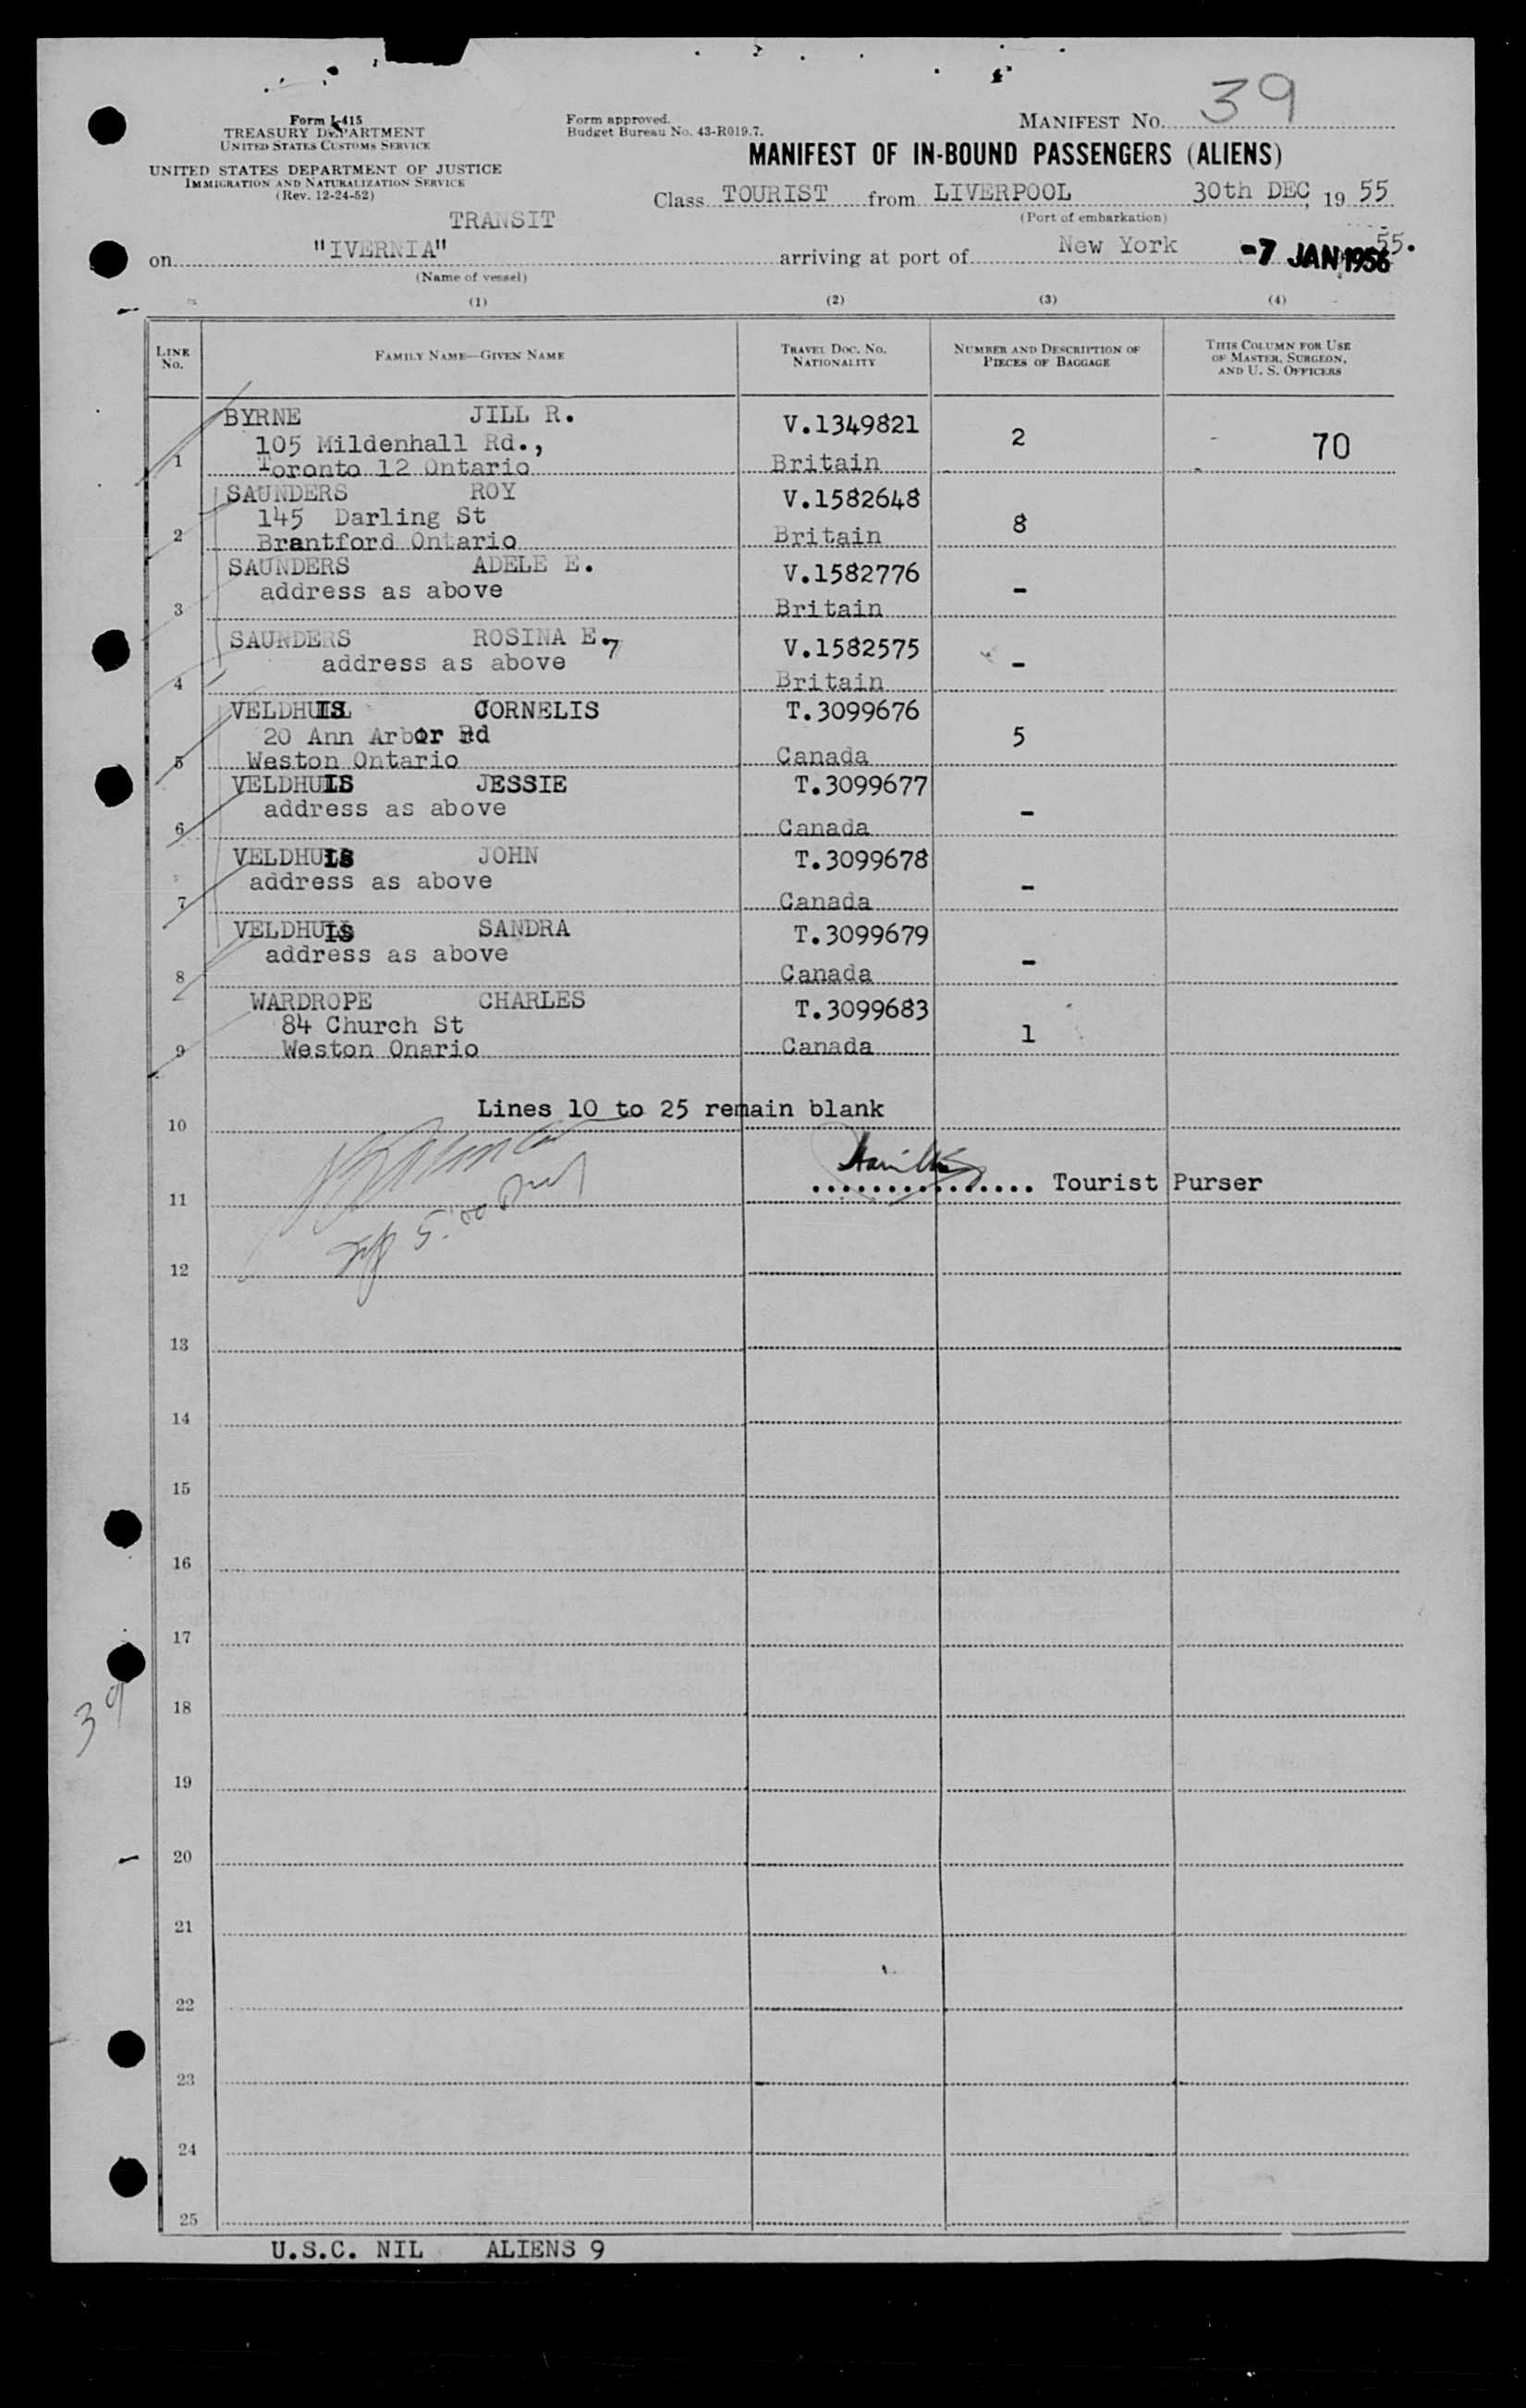 Form I-415
TREASURY DEPARTMENT
UNITED STATES CUSTOMS SERVICE
UNITED STATES DEPARTMENT OF JUSTICE
IMMIGRATION AND NATURALIZATION SERVICE
(Rev. 12-24-52)
Form approved.
Budget Bureau No. 43-R019.7.
MANIFEST NO. 39
MANIFEST OF IN-BOUND PASSENGERS (ALIENS)
Class TOURIST from LIVERPOOL 30th DEC, 19 55
(Port of embarkation)
TRANSIT
on "IVERNIA" arriving at port of New York -7 JAN 1956 55.
(Name of vessel)
(1) (2) (3) (4)
LINE NO. FAMILY NAME—GIVEN NAME TRAVEL DOC. NO. NATIONALITY NUMBER AND DESCRIPTION OF PIECES OF BAGGAGE THIS COLUMN FOR USE OF MASTER, SURGEON, AND U. S. OFFICERS
BYRNE JILL R. V.1349821
105 Mildenhall Rd., 2 70
1 Toronto 12 Ontario Britain
SAUNDERS ROY V.1582648
145 Darling St 8
2 Brantford Ontario Britain
SAUNDERS ADELE E. V.1582776
address as above -
3 Britain
SAUNDERS ROSINA E. 7 V.1582575
address as above -
4 Britain
VELDHUIS CORNELIS T.3099676
20 Ann Arbor Rd 5
5 Weston Ontario Canada
VELDHUIS JESSIE T.3099677
address as above -
6 Canada
VELDHUIS JOHN T.3099678
address as above -
7 Canada
VELDHUIS SANDRA T.3099679
address as above -
8 Canada
WARDROPE CHARLES T.3099683
84 Church St 1
9 Weston Onario Canada
Lines 10 to 25 remain blank
10
11 Tourist Purser
5.00
12
13
14
15
16
17
39
18
19
20
21
22
23
24
25
U.S.C. NIL ALIENS 9